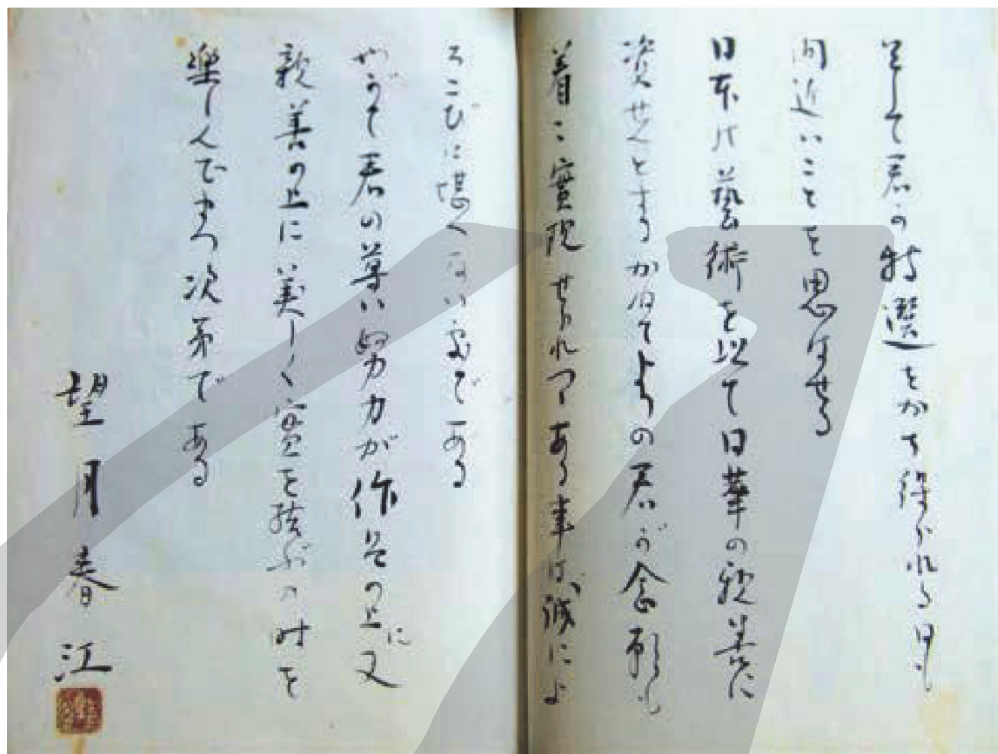 そして君の特選をかち得られる日も
間近いことを思はせる
日本の藝術を以て日華の親善に
資せんとするかねてよりの君が念願も
着々實現せられつつある事は誠によ
ろこびに堪へない處である
やがて君の尊い努力が作品の上に又
親善の上に美しく實を結ぶの時を
楽しんでまつ次第である
望月春江